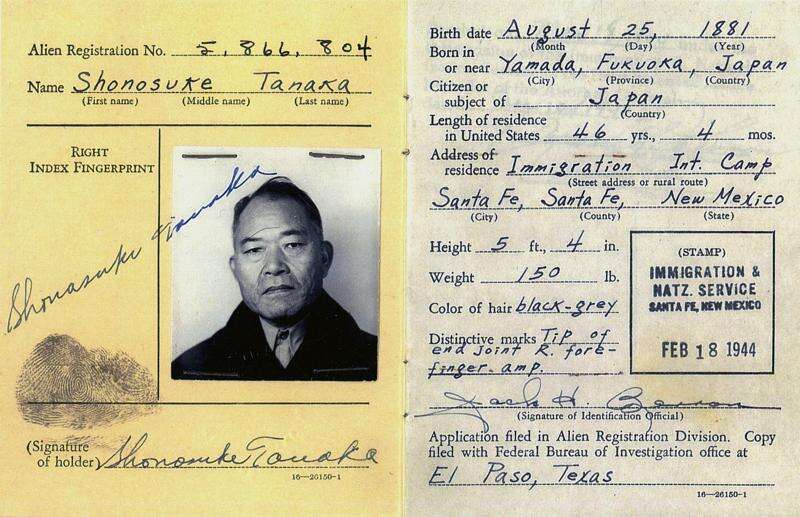 Alien Registration No. 5,866,804
Name Shonosuke Tanaka
(First name) (Middle name) (Last name)
RIGHT
INDEX FINGERPRINT
Shonasuki Tanaka
(Signature
of holder) Shonosuke Tanaka
16—26150-1
Birth date August 25, 1881
(Month (Day) (Year)
Born in
or near Yamada, Fukuoka, Japan
(City) (Province) (Country)
Citizen or
subject of Japan
(Country)
Length of residence
in United States 46 yrs., 4 mos.
Address of
residence Immigration Int. Camp
(Street address or rural route)
Santa Fe, Santa Fe, New Mexico
(City) (County) (State)
Height 5 ft., 4 in.
Weight 150 lb.
Color of hair black-grey
Distinctive marks Tip of
end joint R. fore-
finger amp.
(STAMP)
IMMIGRATION &
NATZ. SERVICE
SANTA FE, NEW MEXICO
FEB 18 1944
Jack H.
(Signature of Identification Official)
Application filed in Alien Registration Division. Copy
filed with Federal Bureau of Investigation office at
El Paso, Texas
16—26150-1